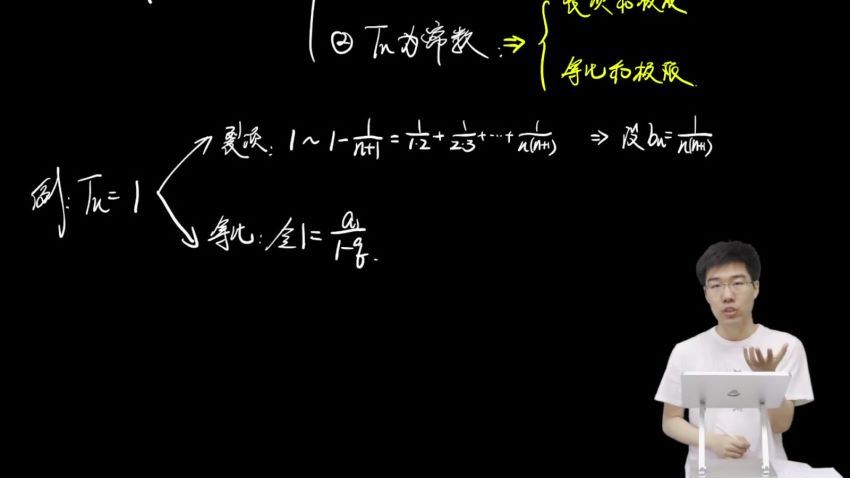 裂项和极限
② Tn为常数:⇒
等比和极限
裂项: 1 ~ 1 - \frac{1}{n+1} = \frac{1}{1·2} + \frac{1}{2·3} + … + \frac{1}{n(n+1)} ⇒ 设bn = \frac{1}{n(n+1)}
例: Tn = 1
等比: 令1 = \frac{a_1}{1-q}.